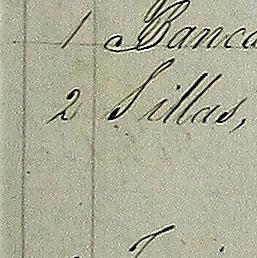 1 Banca
2 Sillas,